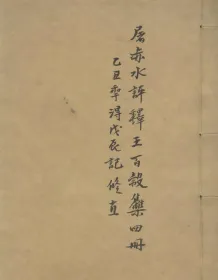 屠赤水評釋王百穀集四冊
己丑季得戊辰記修直